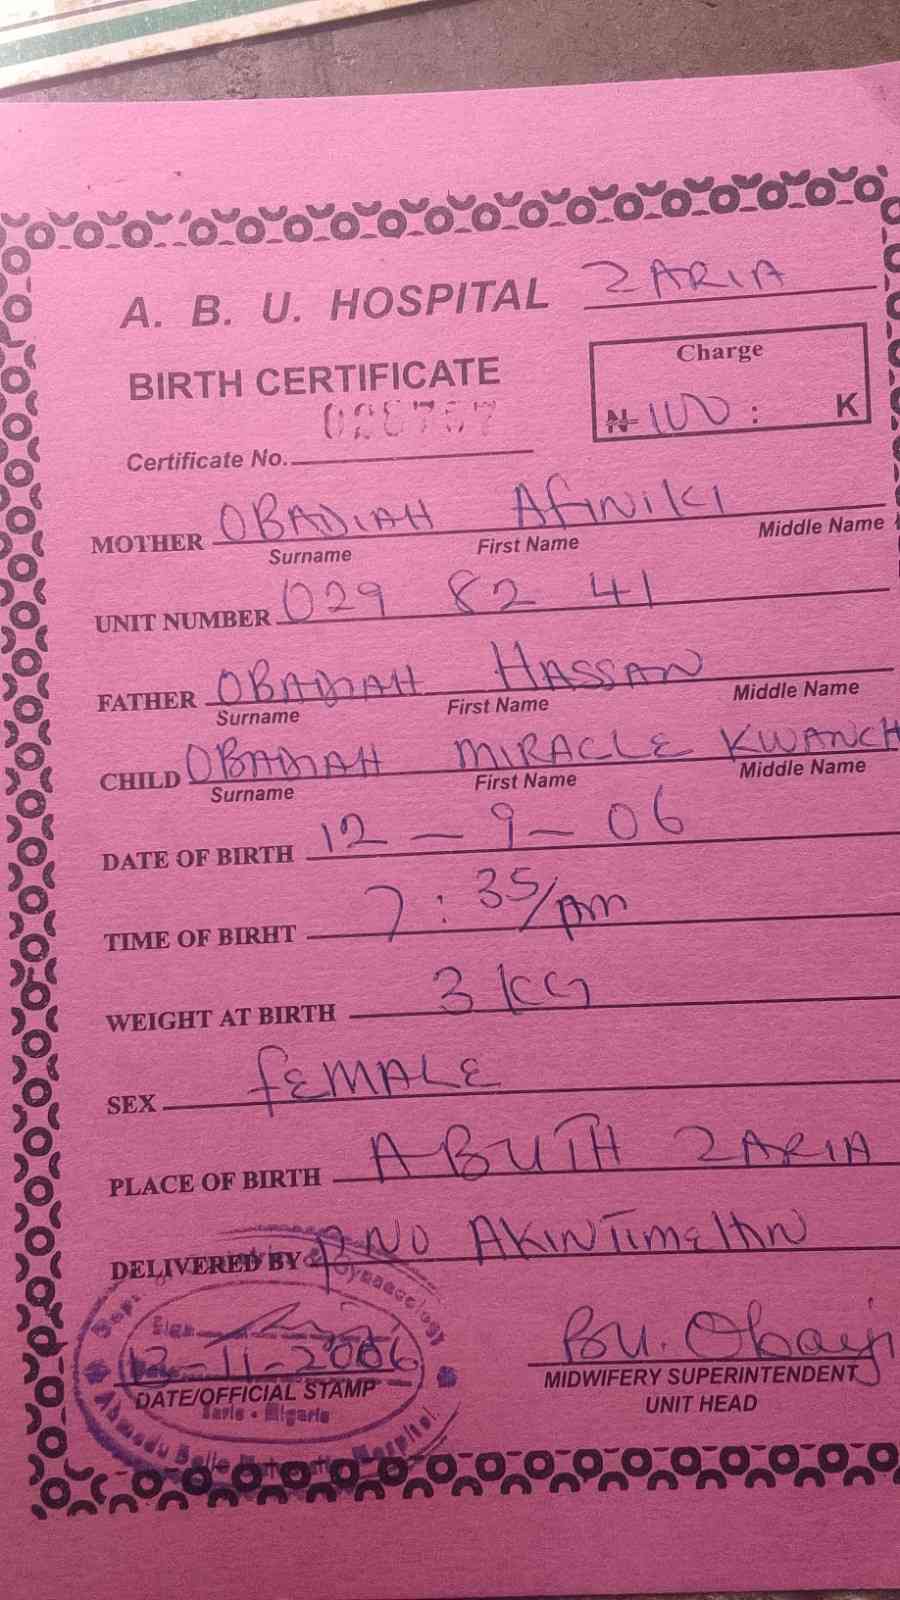 A. B. U. HOSPITAL ZARIA
BIRTH CERTIFICATE
Charge
₦ 100 : K
Certificate No.
MOTHER OBADIAH AFINIKI
Surname First Name Middle Name
UNIT NUMBER 029 82 41
FATHER OBADIAH HASSAN
Surname First Name Middle Name
CHILD OBADIAH MIRACLE KWANCH
Surname First Name Middle Name
DATE OF BIRTH 12 - 9 - 06
TIME OF BIRHT 7:35/pm
WEIGHT AT BIRTH 3KG
SEX FEMALE
PLACE OF BIRTH ABUTH ZARIA
DELIVERED BY NO
Gynaecology
Sign
12-11-2006
DATE/OFFICIAL STAMP
Zaria - Nigeria
Ahmadu Bello Hospital
MIDWIFERY SUPERINTENDENT
UNIT HEAD